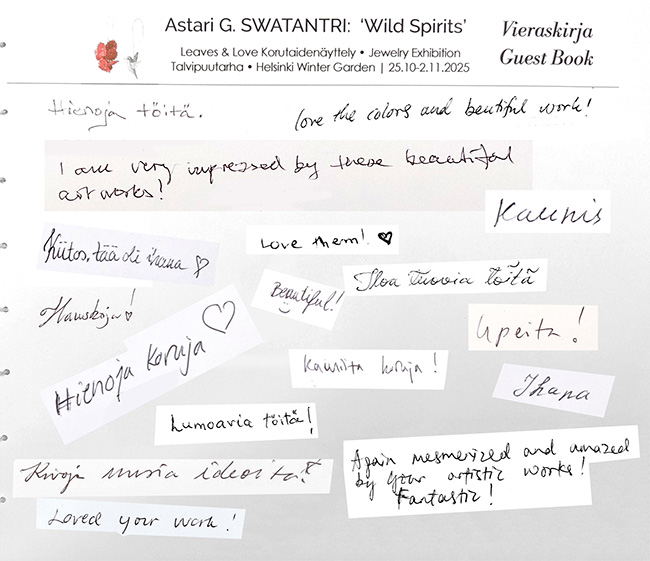 Astari G. SWATANTRI: 'Wild Spirits'
Leaves & Love Korutaidenäyttely • Jewelry Exhibition
Talvipuutarha • Helsinki Winter Garden | 25.10-2.11.2025
Vieraskirja
Guest Book
Hienoja töitä.
love the colors and beutiful work!
I am very impressed by these beautiful
artworks!
Kaunis
Kiitos, tää oli ihana
Love them!
Beautiful!
Iloa tuovia töitä
Hauskoja!
Hienoja koruja
Upeita!
Kauniita koruja!
Ihana
Lumoavia töitä!
Kivoja uusia ideoita!
Again mesmerized and amazed
by your artistic works!
Fantastic!
Loved your work!